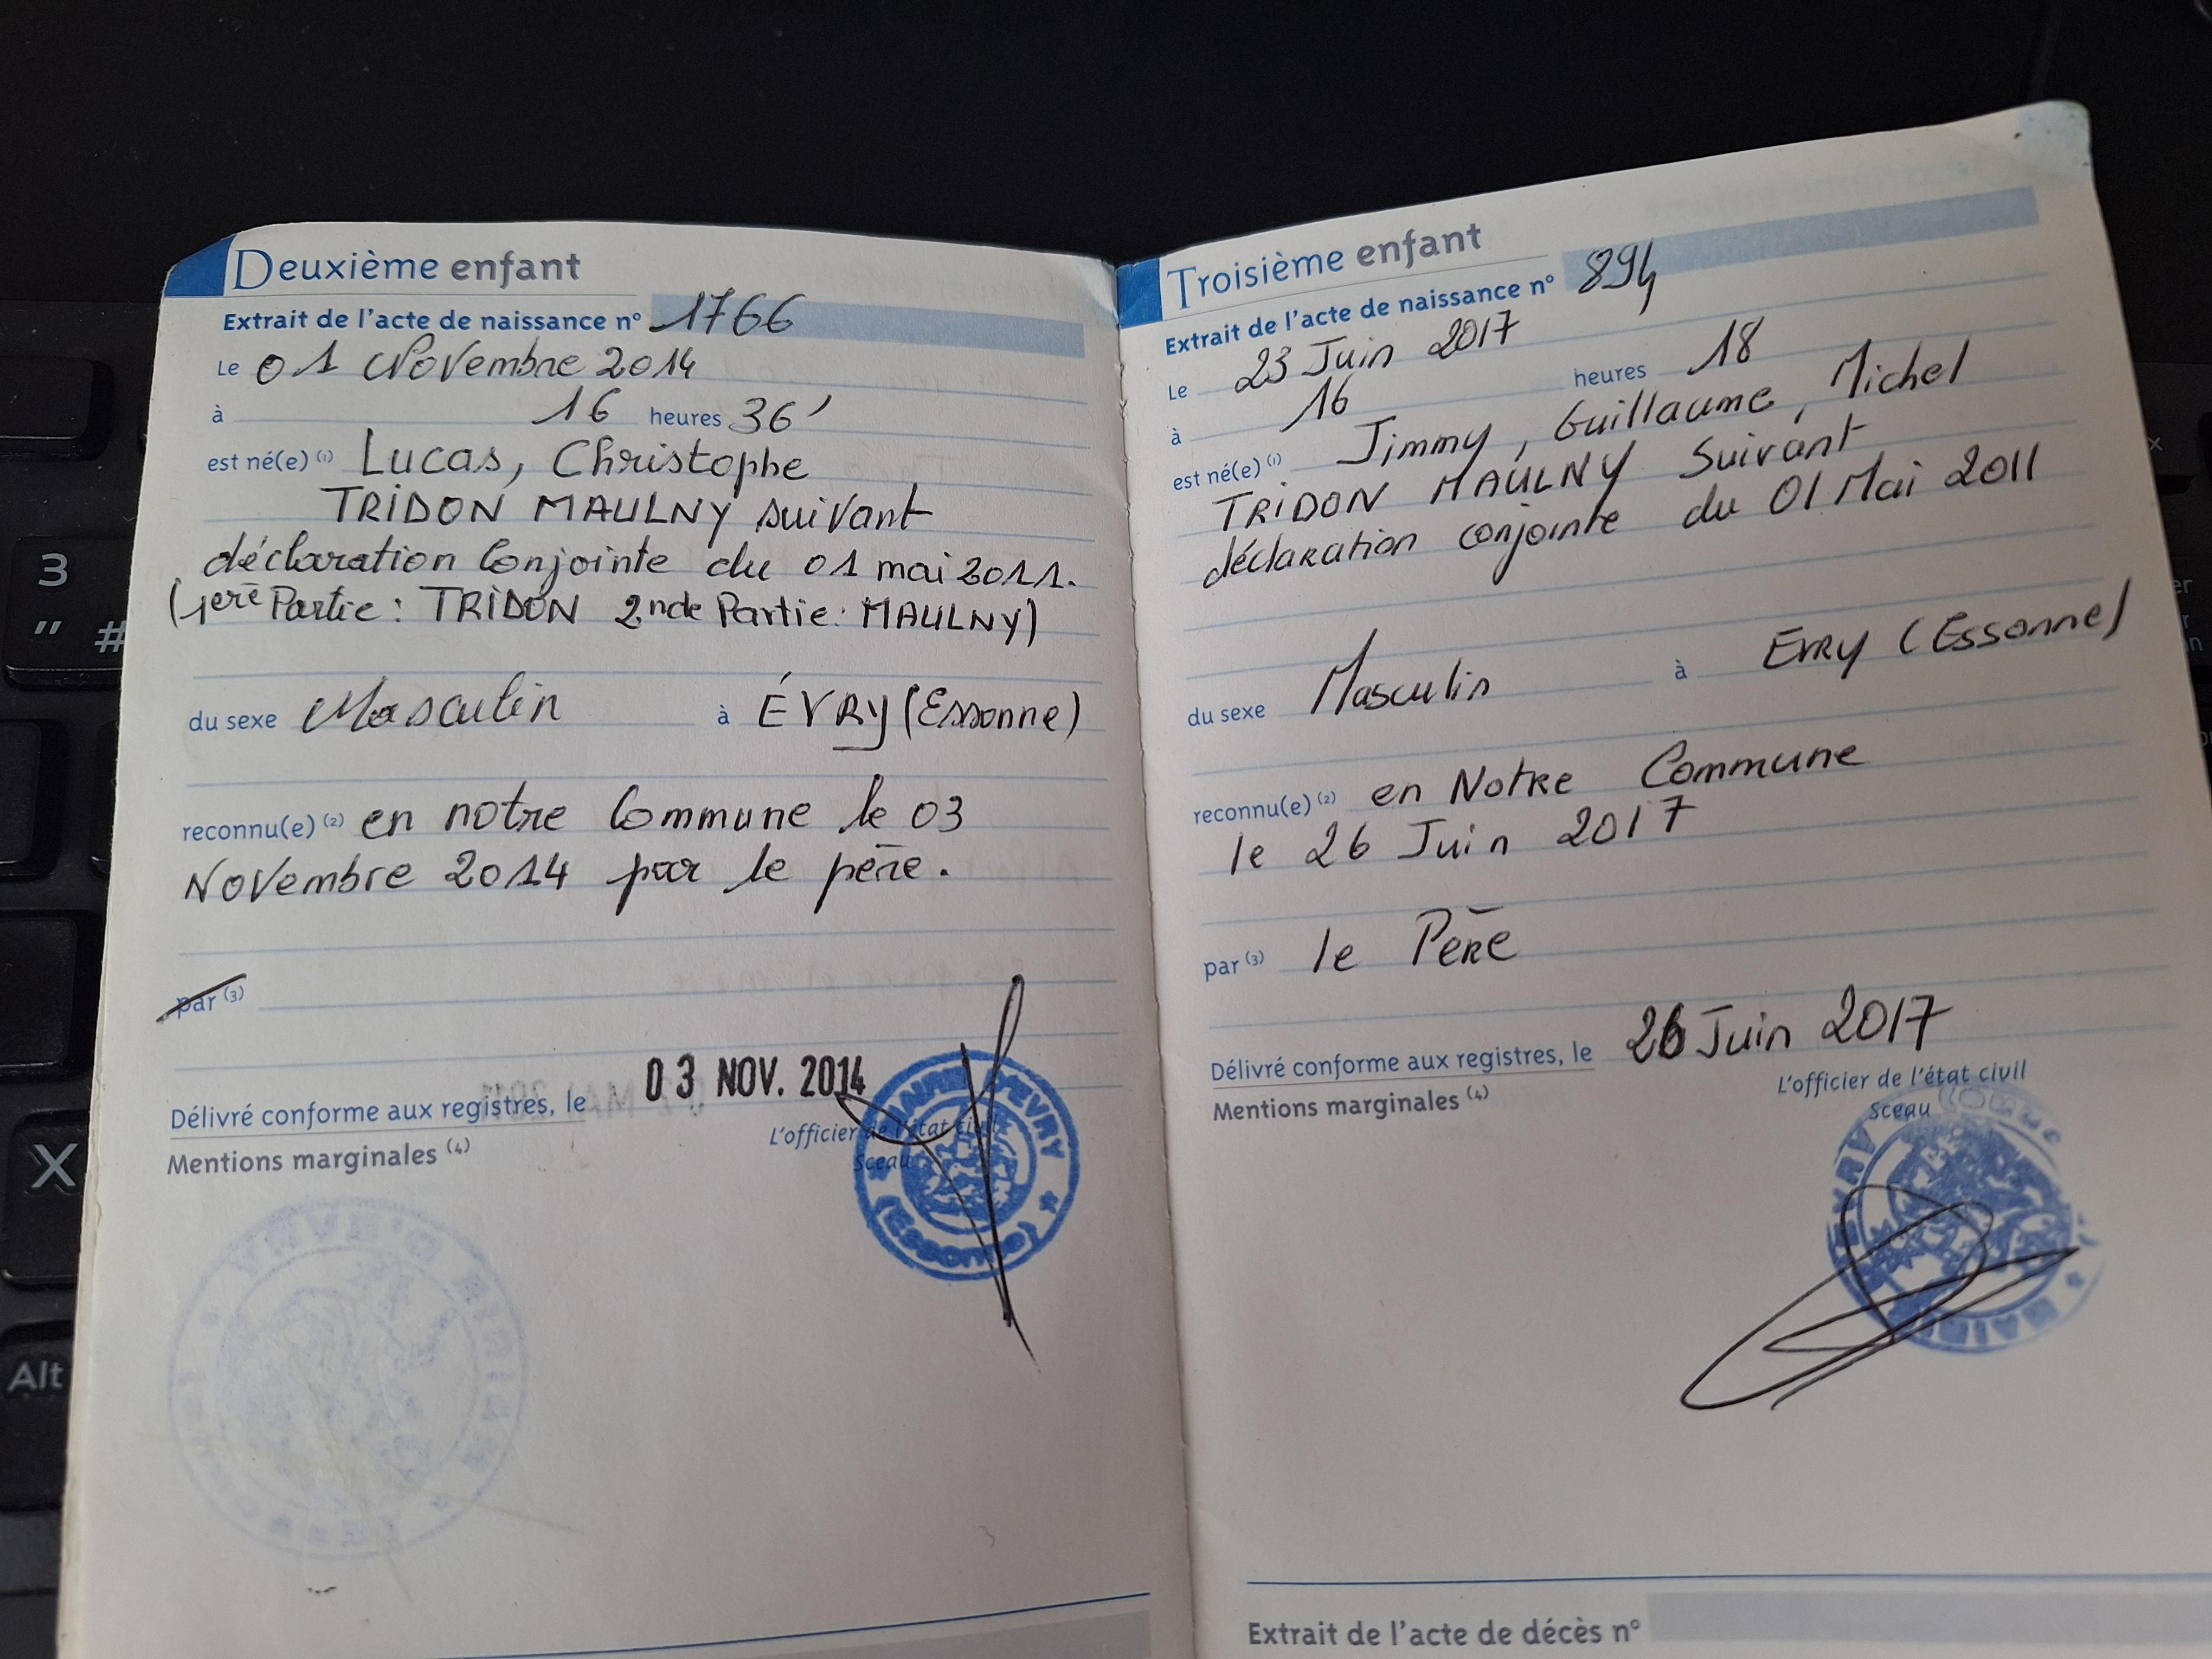 Deuxième enfant
Extrait de l'acte de naissance n° 1766
Le 01 Novembre 2014
à 16 heures 36'
est né(e) (1) Lucas, Christophe
TRIDON MAULNY suivant
déclaration conjointe du 01 mai 2011.
(1ère Partie : TRIDON 2nde Partie : MAULNY)
du sexe Masculin à ÉVRY (Essonne)
reconnu(e) (2) en notre Commune le 03
Novembre 2014 par le père.
par (3)
Délivré conforme aux registres, le 03 NOV. 2014
L'officier de l'état civil
Sceau
Mentions marginales (4)
MAIRIE D'EVRY
(Essonne)
Troisième enfant
Extrait de l'acte de naissance n° 894
Le 23 Juin 2017
à 16 heures 18
est né(e) (1) Jimmy, Guillaume, Michel
TRIDON MAULNY Suivant
déclaration conjointe du 01 Mai 2011
du sexe Masculin à EVRY (Essonne)
reconnu(e) (2) en Notre Commune
le 26 Juin 2017
par (3) le Père
Délivré conforme aux registres, le 26 Juin 2017
L'officier de l'état civil
Sceau
Mentions marginales (4)
Extrait de l'acte de décès n°
3
" #
X
Alt